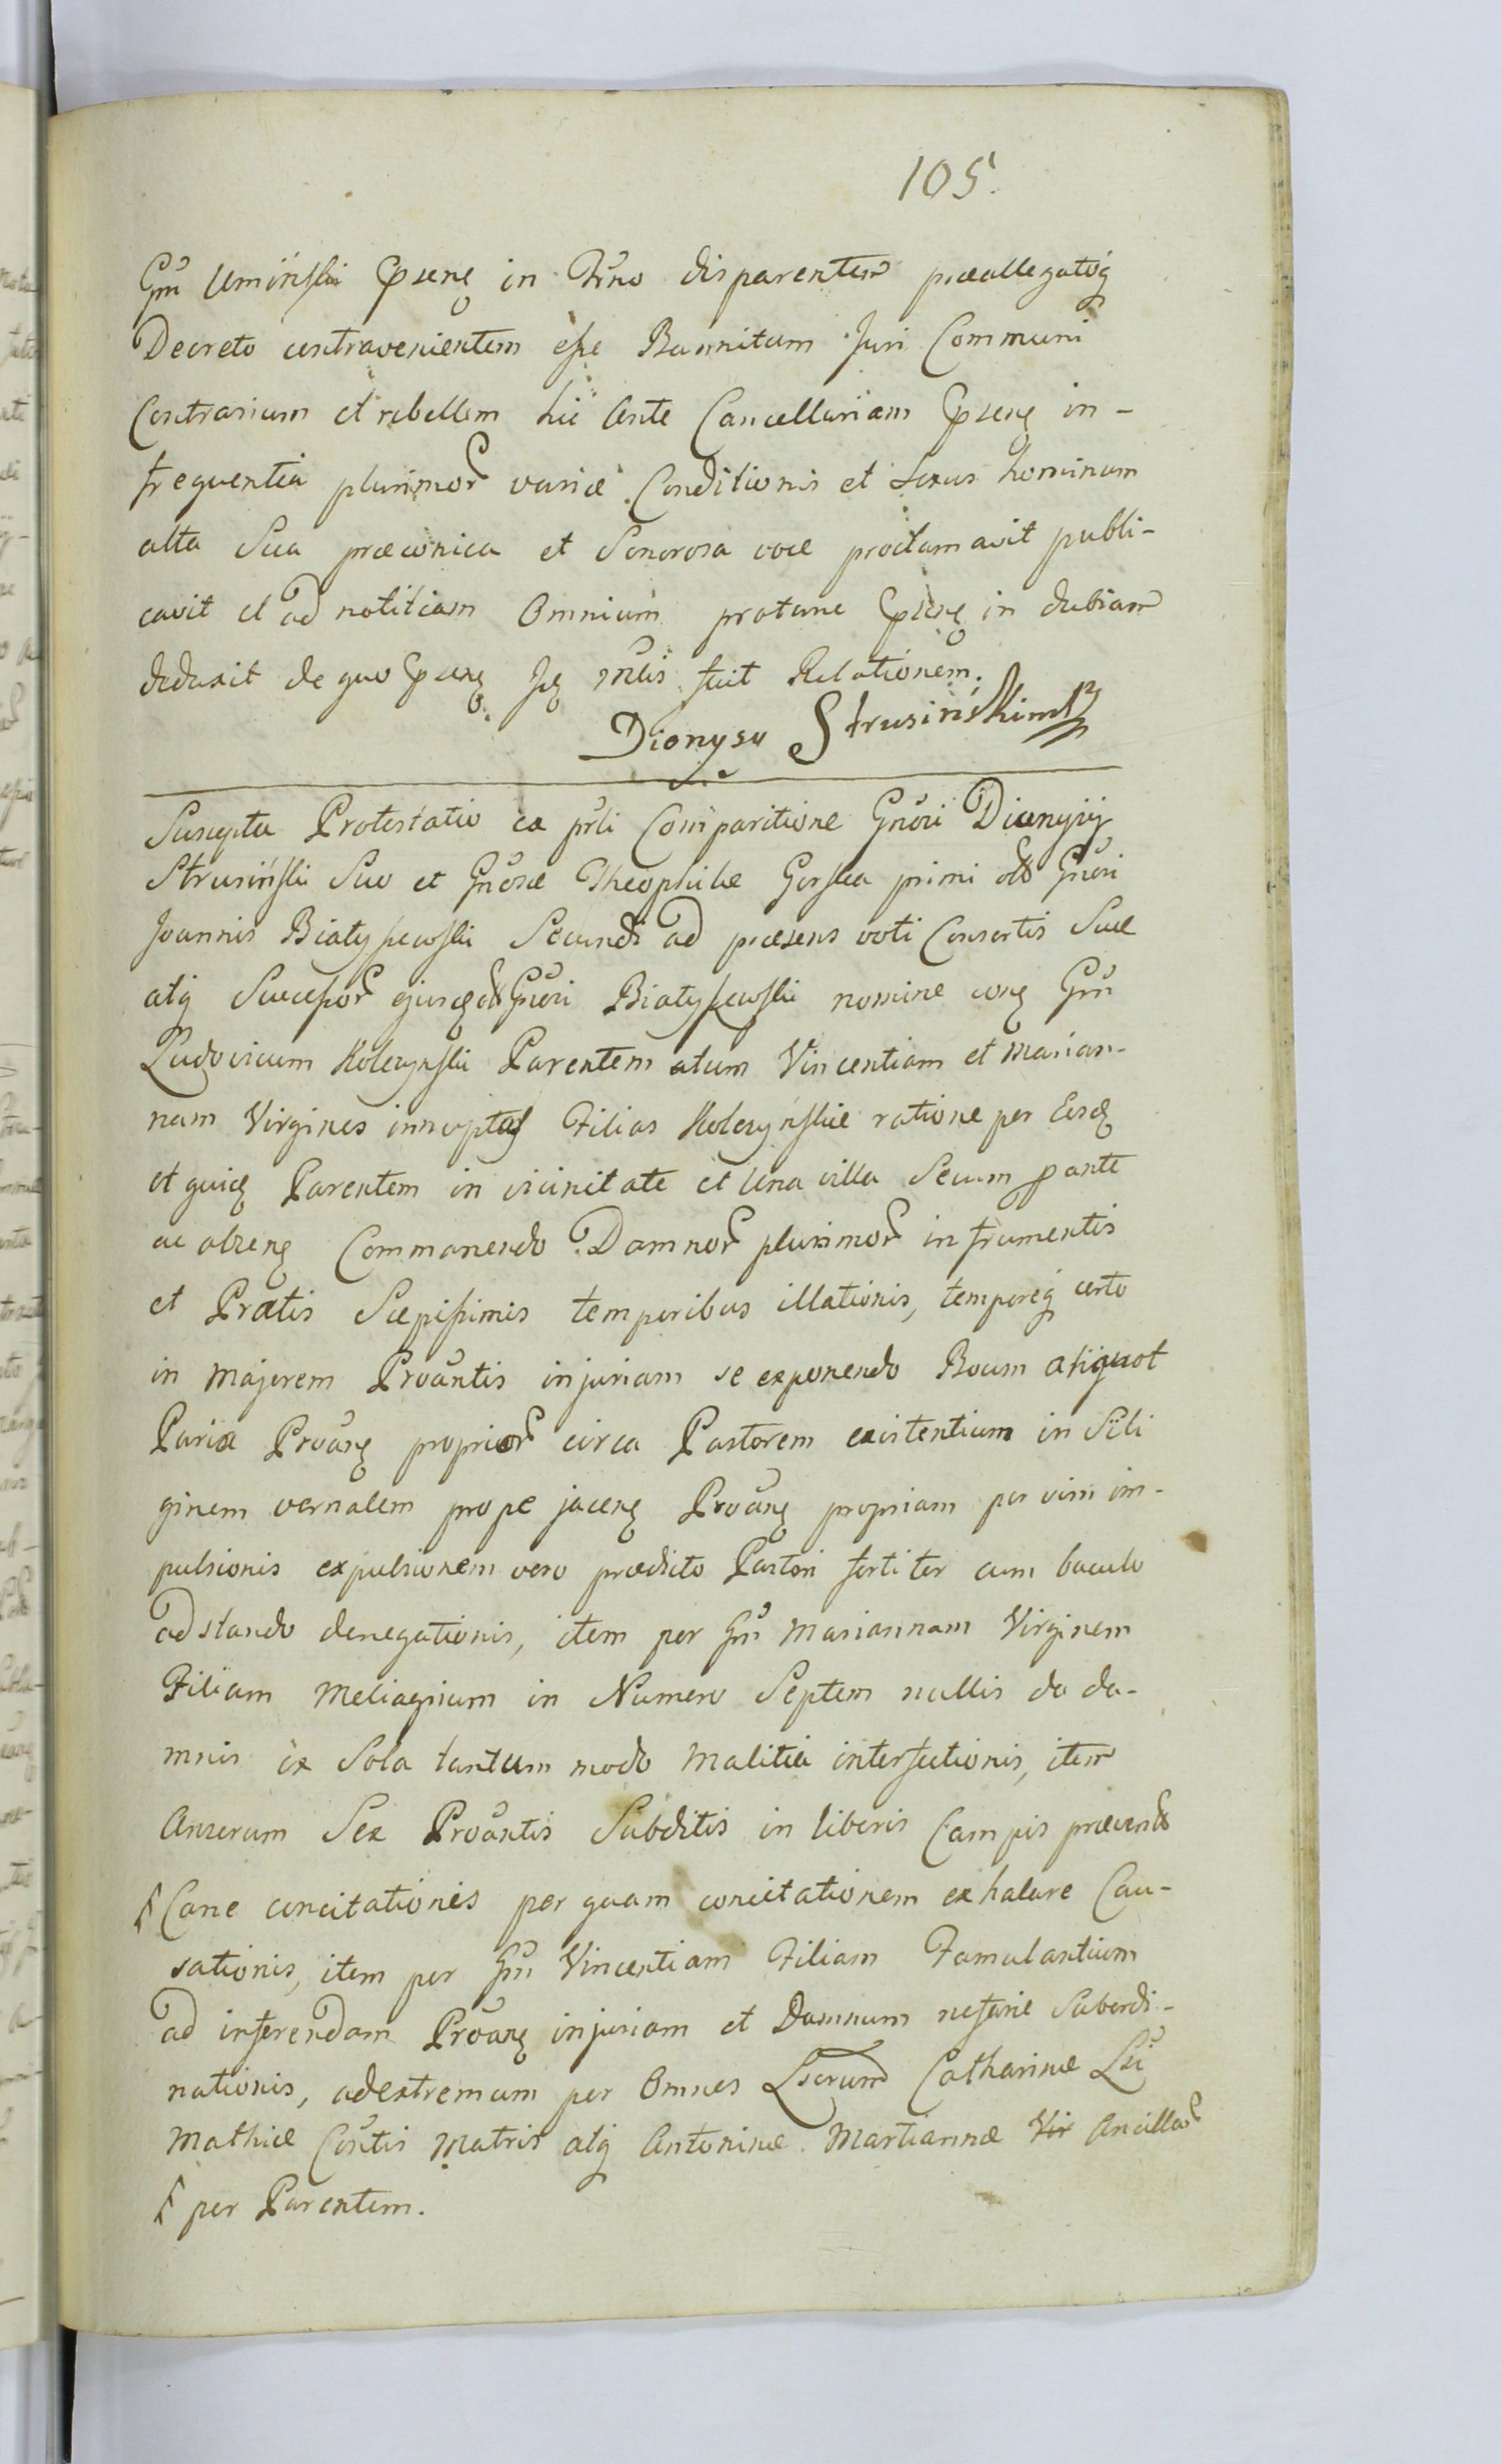 105.
Gm Umiński Cpsenꝫ in Trno disparentem præallegatoq
Decreto contravenientem esse Bannitum Juri Communi
Contrarium et rebellem hic Ante Cancellariam Cpsenꝫ in-
frequentia plurimor variæ Conditionis et Sexus hominum
alta Sua præconica et Sonorosa voce proclamavit publi-
cavit et ad notitiam Omnium protunc Cpsenꝫ in dubiam
deduxit de quo Cpsenꝫ Mlis fecit Relationem.
Dionysy Strusiński mp
Suscepta Protestatio ex prli Comparitione Gnosi Dionyzij
Strusiński Suo et Gnosæ Theophilæ Gorska primi olo Gnosi
Joannis Białyszewski Secundi ad præsens voti Consortis Suæ
atq Succeßor ejusdem olo Gnosi Białyszewski nomine conꝫ Gm
Ludovicum Kolczynski Parentem atum Vincentiam et Marian-
nam Virgines innuptas Filias Kolczyńskie ratione per Eosdꝫ
et quidꝫ Parentem in vicinitate et Una villa Secum pante
ac absenꝫ Commanendo Damnor plurimor in frumentis
et Pratis Sæpißimis temporibus illationis, temporeq certo
in majorem Proantis injuriam se exponendo Boum aliquot
Paria Proanꝫ proprior circa Pastorem existentium in Sili
ginem vernalem prope jacenꝫ Proanꝫ propriam per vim im-
pulsionis expulsionem vero prædicto Pastori fortiter cum baculo
adstando denegationis, item per Gm Mariannam Virginem
Filiam Meliagrium in Numero Septem nullis da da-
mnis ex Sola tantum modo Malitia interfectionis, item
Anserum Sex Proantis Subditis in liberis Campis præcundo
Cane concitationis per quam concitationem exhalare Cau-
sationis, item per Gm Vincentiam Filiam Famulantium
ad inferendam Proanꝫ injuriam et Damnum nefarie Subordi-
nationis, ad extremum per Omnes Lsorum Catharinæ Lsi
Mathiæ Contis Matris atq Antoninæ Martiannæ Vir Ancillar
per Parentem.